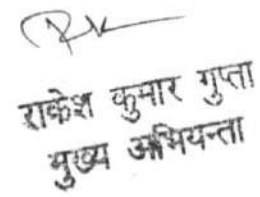 राकेश कुमार गुप्ता
मुख्य अभियन्ता